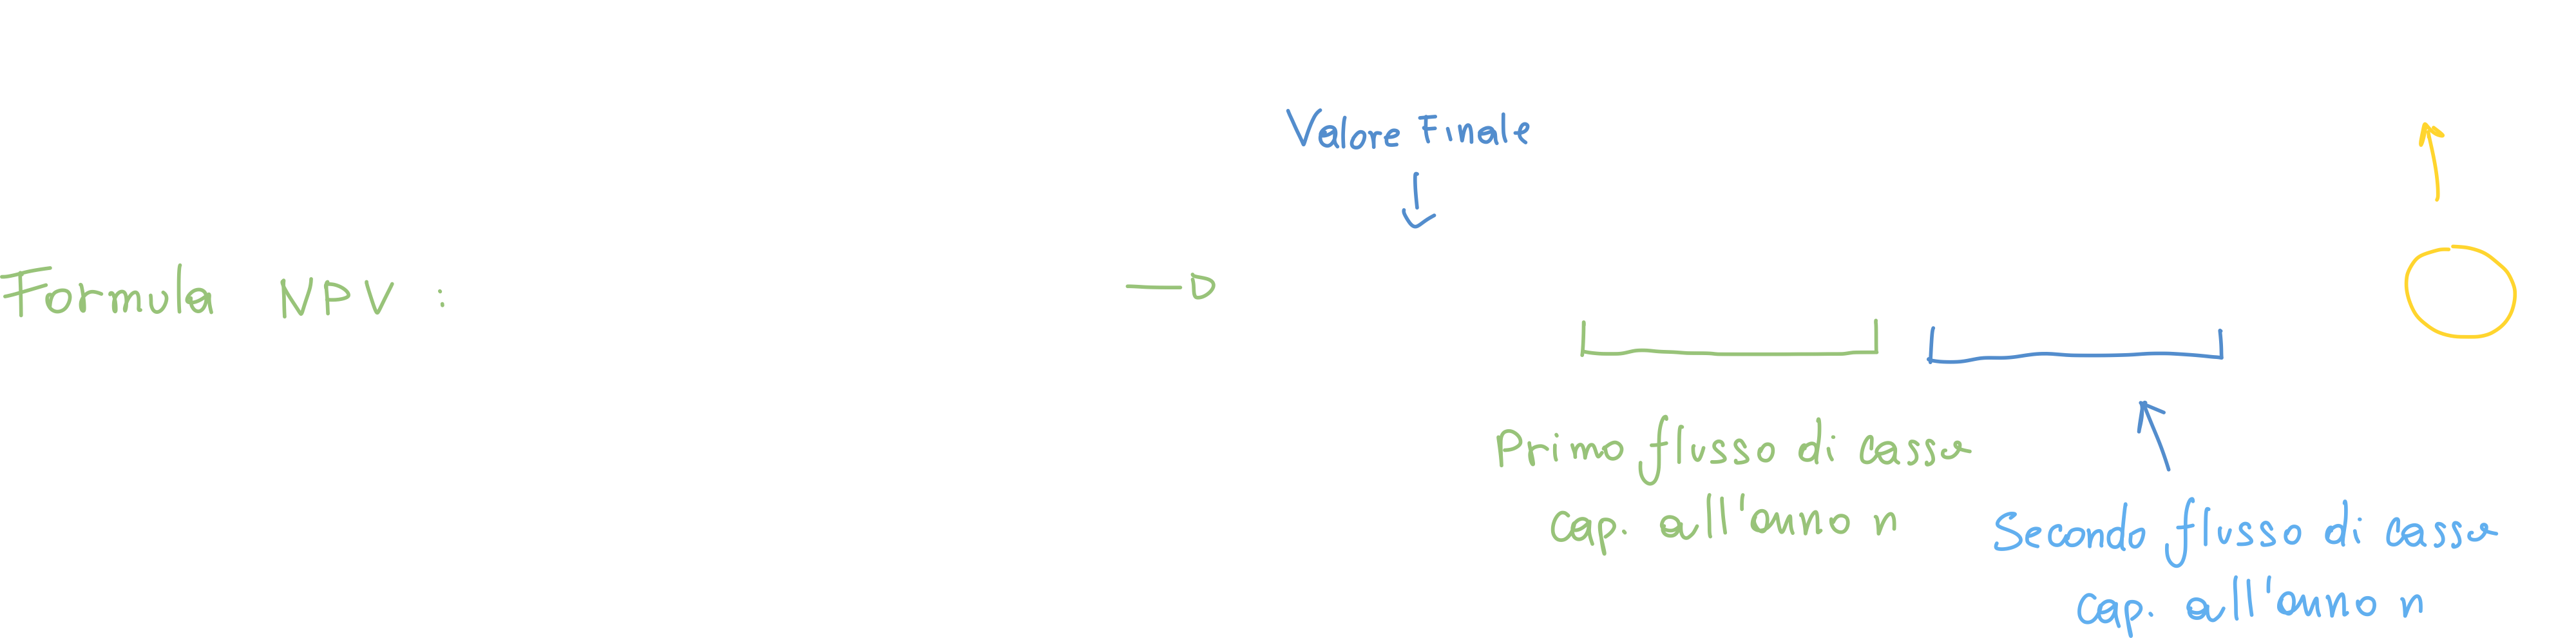 Valore Finale
Formula NPV :
Primo flusso di cassa
cap. all'anno n
Secondo flusso di cassa
cap. all'anno n